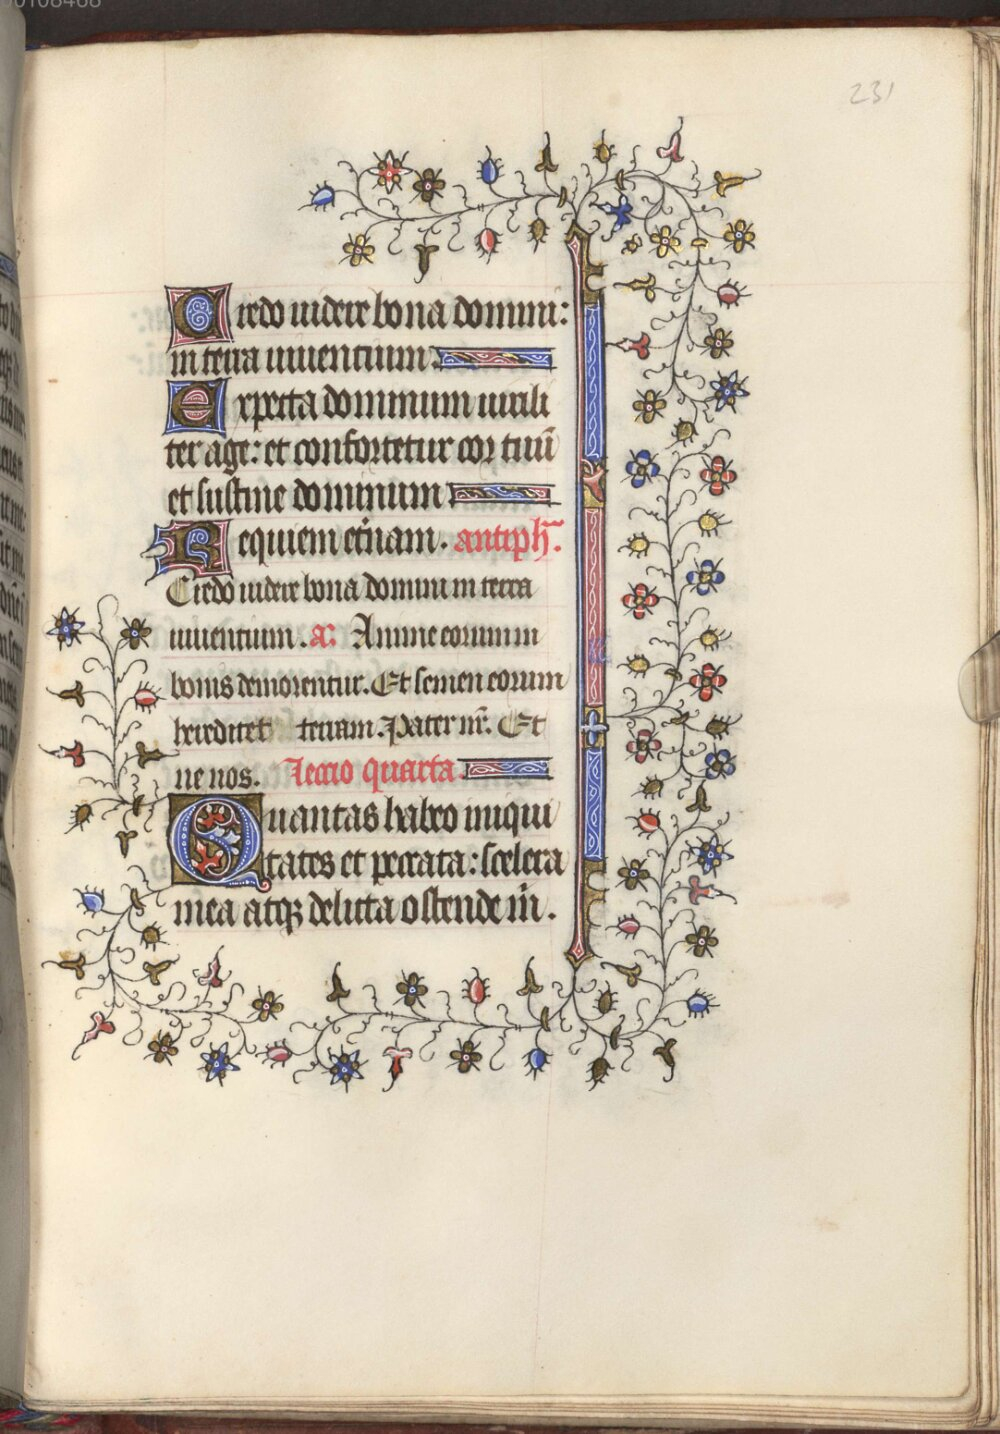 231
Credo uidere bona domini:
in terra uiuentium
Expecta dominum uirili
ter age: et confortetur cor tuū
et sustine dominum
Requiem et̄nam. antiph̄.
Credo uidere bona domini in terra
uiuentium. a: Anime eorum in
bonis demorentur. Et semen eorum
hereditet terram. Pater nr̄. Et
ne nos. Lectio quarta
Quantas habeo iniqui
tates et peccata: scelera
mea atqꝫ delicta ostende m̄.